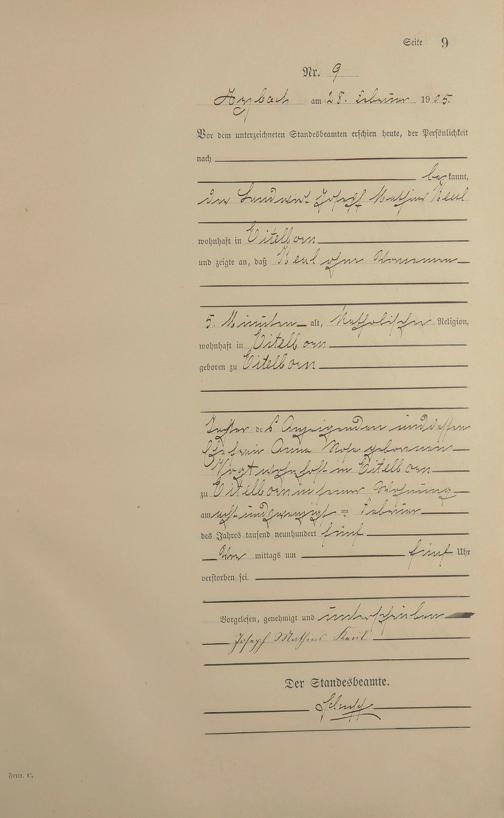 Seite 9
Nr. 9
Arzbach am 28. Februar 1905.
Vor dem unterzeichneten Standesbeamten erschien heute, der Persönlichkeit
nach
bekannt,
der Landwirt Joseph Mathias Keul
wohnhaft in Eitelborn
und zeigte an, daß Keul ohne Vornamen
5 Minuten alt, katholischer Religion,
wohnhaft in Eitelborn
geboren zu Eitelborn
Tochter des Anzeigenden und dessen
Ehefrau Anna Rosa geborenen
Vogt wohnhaft in Eitelborn
zu Eitelborn in seiner Wohnung
am acht und zwanzigsten Februar
des Jahres tausend neunhundert fünf
mittags um fünf Uhr
verstorben sei.
Vorgelesen, genehmigt und unterschrieben
Joseph Mathias Keul
Der Standesbeamte.
Form. C.